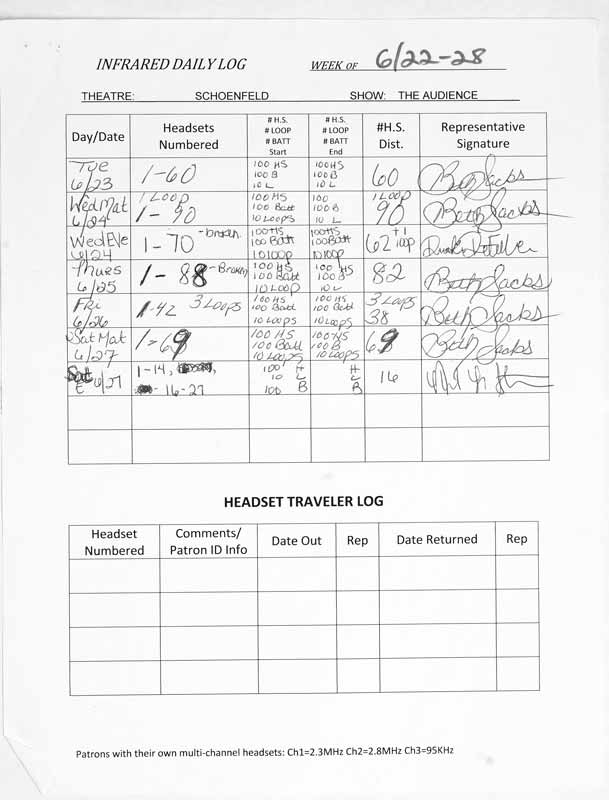 INFRARED DAILY LOG WEEK OF 6/22-28
THEATRE: SCHOENFELD SHOW: THE AUDIENCE
Day/Date Headsets Numbered # H.S. # LOOP # BATT Start # H.S. # LOOP # BATT End #H.S. Dist. Representative Signature
Tue 6/23 1-60 100 HS 100 B 10 L 100HS 100B 10 L 60 Beth Jacks
Wed Mat 6/24 1 LOOP 1-90 100 HS 100 Batt 10 LOOPS 100 100 B 10 L 1 LOOP 90 Beth Jacks
Wed EVE 6/24 1-70 -broken 100HS 100 Batt 10 LOOP 100HS 100Batt 10 LOOP 62 +1 LOOP
Thurs 6/25 1-88 -Broken 100 HS 100 Batt 10 LOOP 100 HS 100 B 10 L 82 Beth Jacks
Fri 6/26 1-42 3 LOOPS 100 HS 100 Batt 10 LOOPS 100 HS 100 Batt 10 LOOPS 3 LOOPS 38 Beth Jacks
Sat Mat 6/27 1-69 100 HS 100 Batt 10 LOOPS 100 HS 100 B 10 LOOPS 69 Beth Jacks
Sat E 6/27 1-14, 16-27 100 H 10 L 100 B H L B 16
HEADSET TRAVELER LOG
Headset Numbered Comments/ Patron ID Info Date Out Rep Date Returned Rep
Patrons with their own multi-channel headsets: Ch1=2.3MHz Ch2=2.8MHz Ch3=95KHz